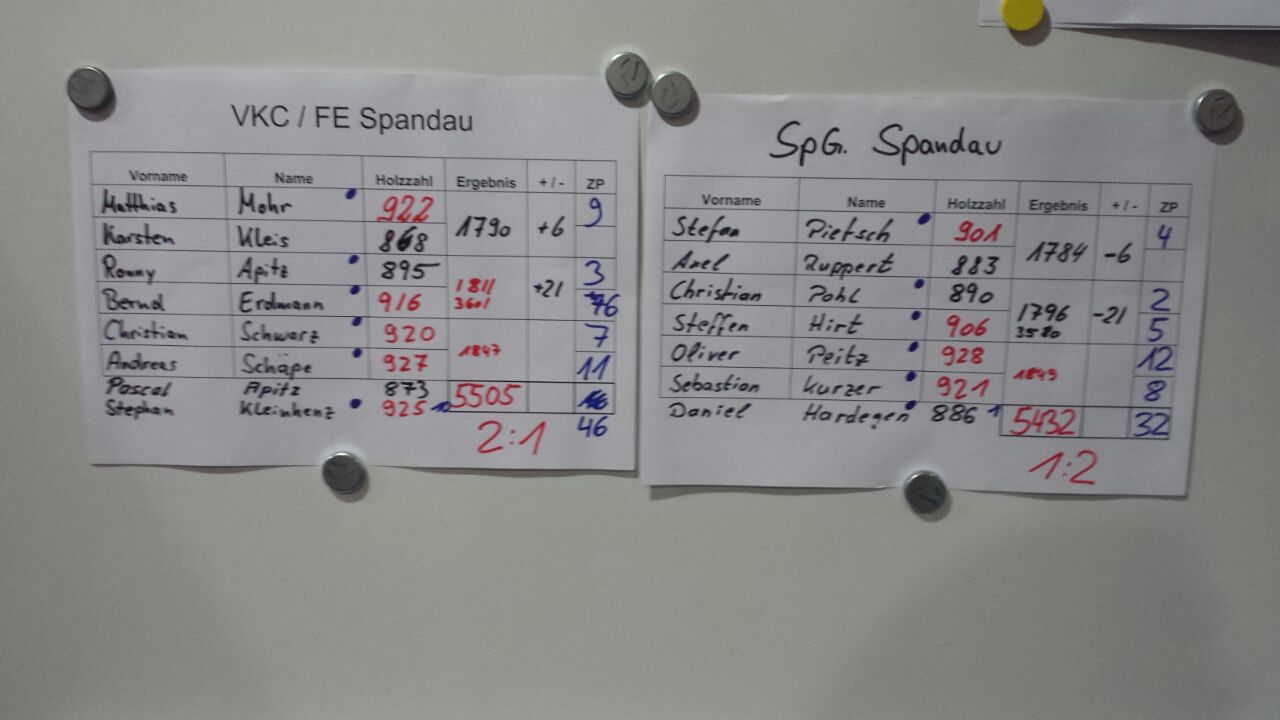 VKC / FE Spandau
Vorname Name Holzzahl Ergebnis + / - ZP
Matthias Mohr 922 1790 +6 9
Karsten Kleis 868
Ronny Apitz 895 1811 +21 3
Bernd Erdmann 916 3601 6
Christian Schwarz 920 1847 7
Andreas Schäpe 927 11
Pascal Apitz 873 5505
Stephan Kleinhenz 925 10 46
2:1
SpG. Spandau
Vorname Name Holzzahl Ergebnis + / - ZP
Stefan Pietsch 901 1784 -6 4
Axel Ruppert 883
Christian Pohl 890 1796 -21 2
Steffen Hirt 906 3580 5
Oliver Peitz 928 1849 12
Sebastian Kurzer 921 8
Daniel Hardegen 886 1 5432 32
1:2